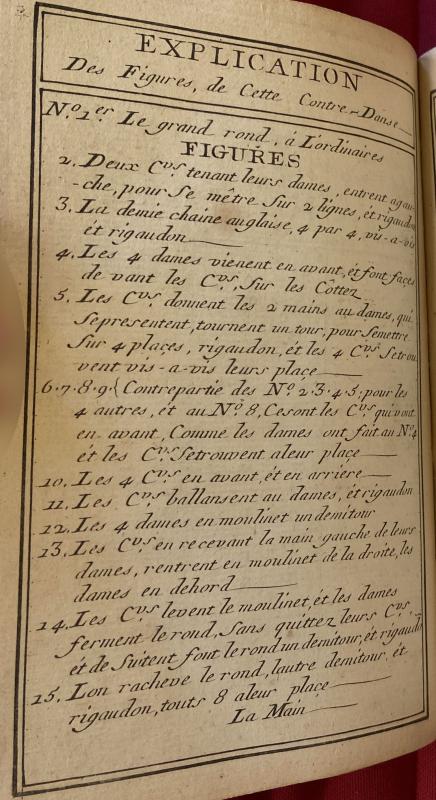 EXPLICATION
Des Figures, de Cette Contre-Danse
N.º 1.er Le grand rond, à L'ordinaires
FIGURES
2. Deux C.vs tenant leurs dames, entrent agau-
-che, pour Se mêtre Sur 2 lignes, ét rigaudon
3. La demie chaine anglaise, 4 par 4, vis-a-vis
ét rigaudon
4. Les 4 dames vienent en avant, ét font faces
de vant les C.vs, Sur les Côttez
5. Les C.vs donnent les 2 mains au dames, qui
Sepresentent, tournent un tour, pour Semettre
Sur 4 places, rigaudon, ét les 4 C.vs Setrou
vent vis-a-vis leurs place
6.7.8.9.{ Contrepartie des N.º 2.3.4.5; pour les
4 autres, ét au N.º 8, Cesont les C.vs qui vont
en avant, Comme les dames ont fait au N.º 4
ét les C.vs Setrouvent aleur place
10. Les 4 C.vs en avant, ét en arriere
11. Les C.vs ballansent au dames, ét rigaudon
12. Les 4 dames en moulinet un demitour
13. Les C.vs en recevant la main gauche de leurs
dames, rentrent en moulinet de la droite, les
dames en dehord
14. Les C.vs levent le moulinet, ét les dames
ferment le rond, Sans quittez leurs C.vs
ét de Suitent font le rond un demitour, ét rigaudon
15. Lon racheve le rond, lautre demitour, ét
rigaudon, touts 8 aleur place
La Main